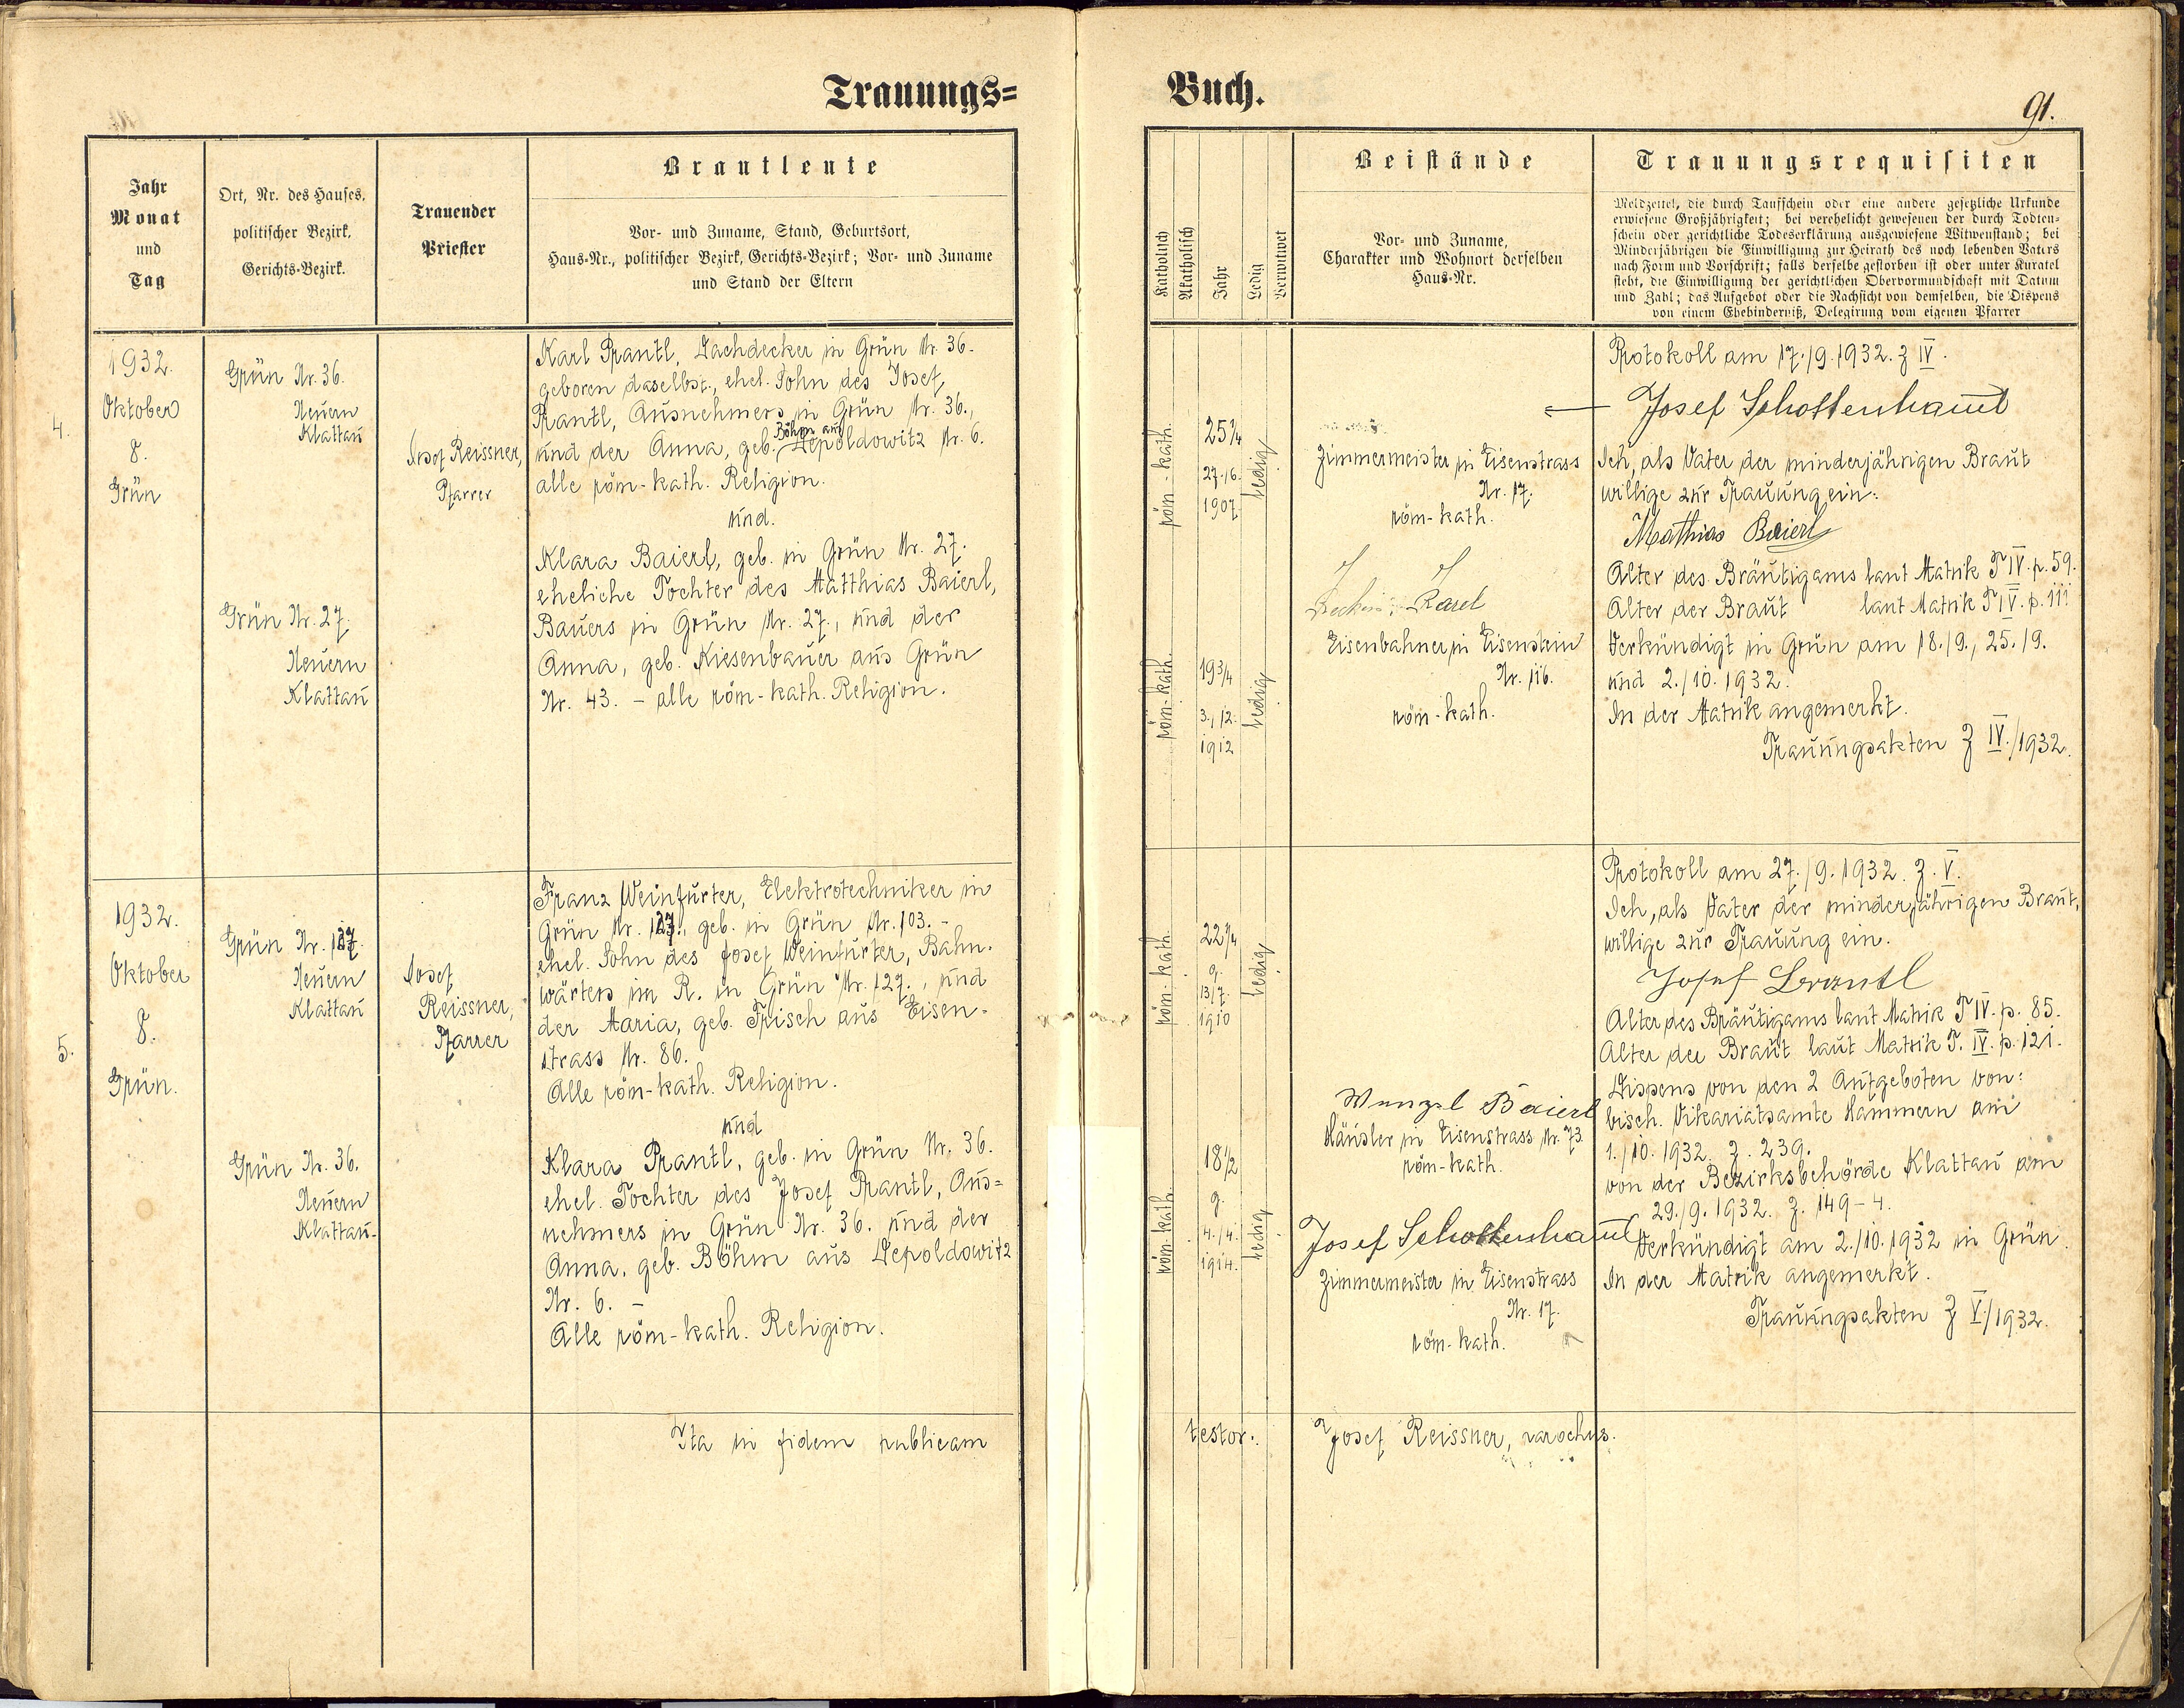 Trauungs=
Jahr
Monat
und
Tag
Ort, Nr. des Hauses,
politischer Bezirk,
Gerichts-Bezirk.
Trauender
Priester
Brautleute
Vor- und Zuname, Stand, Geburtsort,
Haus-Nr., politischer Bezirk, Gerichts-Bezirk; Vor- und Zuname
und Stand der Eltern
4.
1932.
Oktober
8.
Grün
Grün Nr. 36.
Neuern
Klattau
Josef Reissner,
Pfarrer
Karl Prantl, Dachdecker in Grün Nr. 36.
geboren daselbst., ehel. Sohn des Josef
Prantl, Ausnehmers in Grün Nr. 36.,
Böhm aus
und der Anna, geb. Depoldowitz Nr. 6.
alle röm-kath. Religion.
und.
Grün Nr. 27.
Neuern
Klattau
Klara Baierl, geb. in Grün Nr. 27.
eheliche Tochter des Matthias Baierl,
Bauers in Grün Nr. 27., und der
Anna, geb. Kiesenbauer aus Grün
Nr. 43. - alle röm-kath. Religion.
5.
1932.
Oktober
8.
Grün.
Grün Nr. 127.
Neuern
Klattau
Josef
Reissner,
Pfarrer
Franz Weinfurter, Elektrotechniker in
Grün Nr. 127., geb. in Grün Nr. 103. -
ehel. Sohn des Josef Weinfurter, Bahn-
wärters im R. in Grün Nr. 127., und
der Maria, geb. Frisch aus Eisen-
strass Nr. 86.
Alle röm-kath. Religion.
und
Grün Nr. 36.
Neuern
Klattau.
Klara Prantl, geb. in Grün Nr. 36.
ehel. Tochter des Josef Prantl, Aus=
nehmers in Grün Nr. 36. und der
Anna, geb. Böhm aus Depoldowitz
Nr. 6. -
Alle röm-kath. Religion.
Ita in fidem publicam
Buch.
91.
Katholisch
Akatholisch
Jahr
Ledig
Verwitwet
Beistände
Vor- und Zuname,
Charakter und Wohnort derselben
Haus-Nr.
Trauungsrequisiten
Meldzettel, die durch Taufschein oder eine andere gesetzliche Urkunde
erwiesene Großjährigkeit; bei verehelicht gewesenen der durch Todten-
schein oder gerichtliche Todeserklärung ausgewiesene Witwenstand; bei
Minderjährigen die Einwilligung zur Heirath des noch lebenden Vaters
nach Form und Vorschrift; falls derselbe gestorben ist oder unter Kuratel
steht, die Einwilligung der gerichtlichen Obervormundschaft mit Datum
und Zahl; das Aufgebot oder die Nachsicht von demselben, die Dispens
von einem Ehehinderniß, Delegirung vom eigenen Pfarrer
röm-kath.
25 1/4
27./6.
1907
ledig
Zimmermeister in Eisenstrass
Nr. 17.
röm-kath.
röm-kath.
19 3/4
3./12.
1912
ledig
Karel
Eisenbahner in Eisenstein
Nr. 116.
röm-kath.
Protokoll am 17./9.1932. Z IV.
Josef Schottenhaml
Ich, als Vater der minderjährigen Braut
willige zur Trauung ein:
Mathias Baierl
Alter des Bräutigams laut Matrik T IV. p. 59.
Alter der Braut laut Matrik T IV. p. 111
Verkündigt in Grün am 18./9., 25./9.
und 2./10. 1932.
In der Matrik angemerkt.
Trauungsakten Z IV./1932.
röm-kath.
22 1/4
g.
13/7.
1910
ledig
röm-kath.
18 1/2
g.
4./4.
1914.
ledig
Wenzel Baierl
Häusler in Eisenstrass Nr. 73.
röm-kath.
Josef Schottenhaml
Zimmermeister in Eisenstrass
Nr. 17.
röm-kath.
Protokoll am 27./9.1932. Z. V.
Ich, als Vater der minderjährigen Braut,
willige zur Trauung ein.
Josef Prantl
Alter des Bräutigams laut Matrik T IV. p. 85.
Alter der Braut laut Matrik T. IV. p. 121.
Dispens von den 2 Aufgeboten von:
bisch. Vikariatsamte Hammern am
1./10. 1932. Z. 239.
von der Bezirksbehörde Klattau am
29./9. 1932. Z. 149-4.
Verkündigt am 2./10.1932 in Grün.
In der Matrik angemerkt.
Trauungsakten Z V./1932.
testor.
Josef Reissner, parochus.